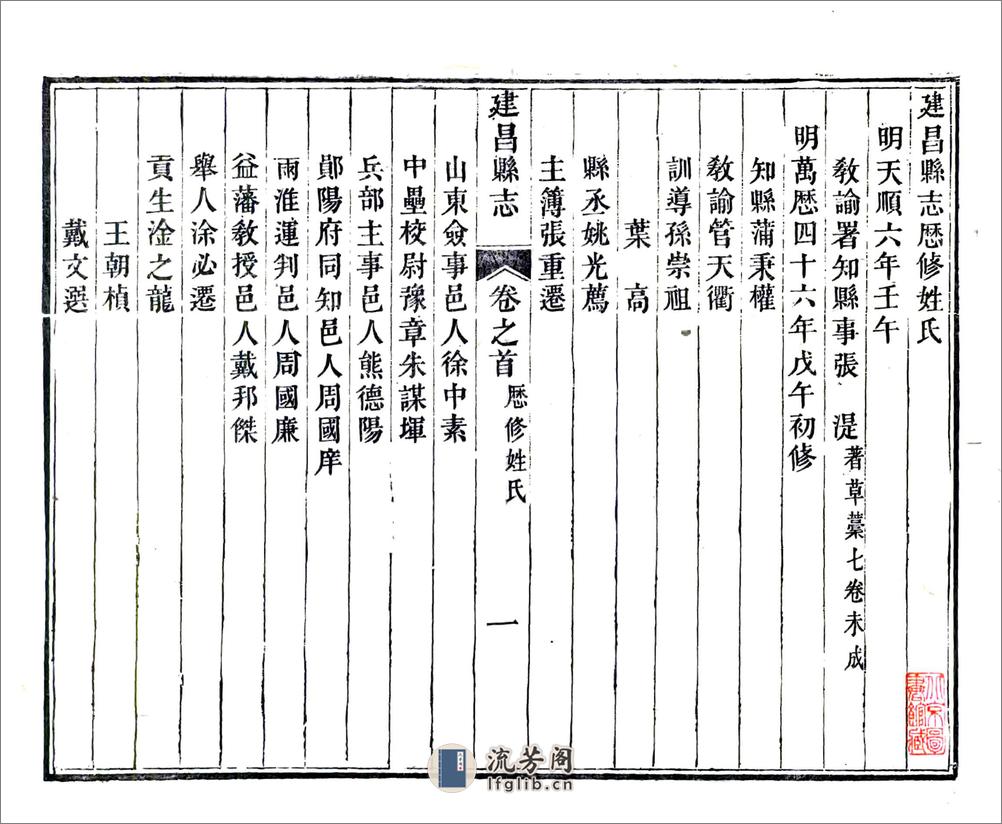 建昌縣志歷修姓氏
明天順六年壬午
教諭署知縣事張 湜著草藳七卷未成
明萬歷四十六年戊午初修
知縣蒲秉權
教諭管天衢
訓導孫崇祖
葉 高
縣丞姚光薦
主簿張重遷
建昌縣志 卷之首 歷修姓氏 一
山東僉事邑人徐中素
中壘校尉豫章朱謀㙔
兵部主事邑人熊德陽
鄖陽府同知邑人周國庠
兩淮運判邑人周國廉
益藩敎授邑人戴邦傑
舉人涂必遷
貢生淦之龍
王朝楨
戴文選
北京圖書館藏
流芳阁
lfglib.cn